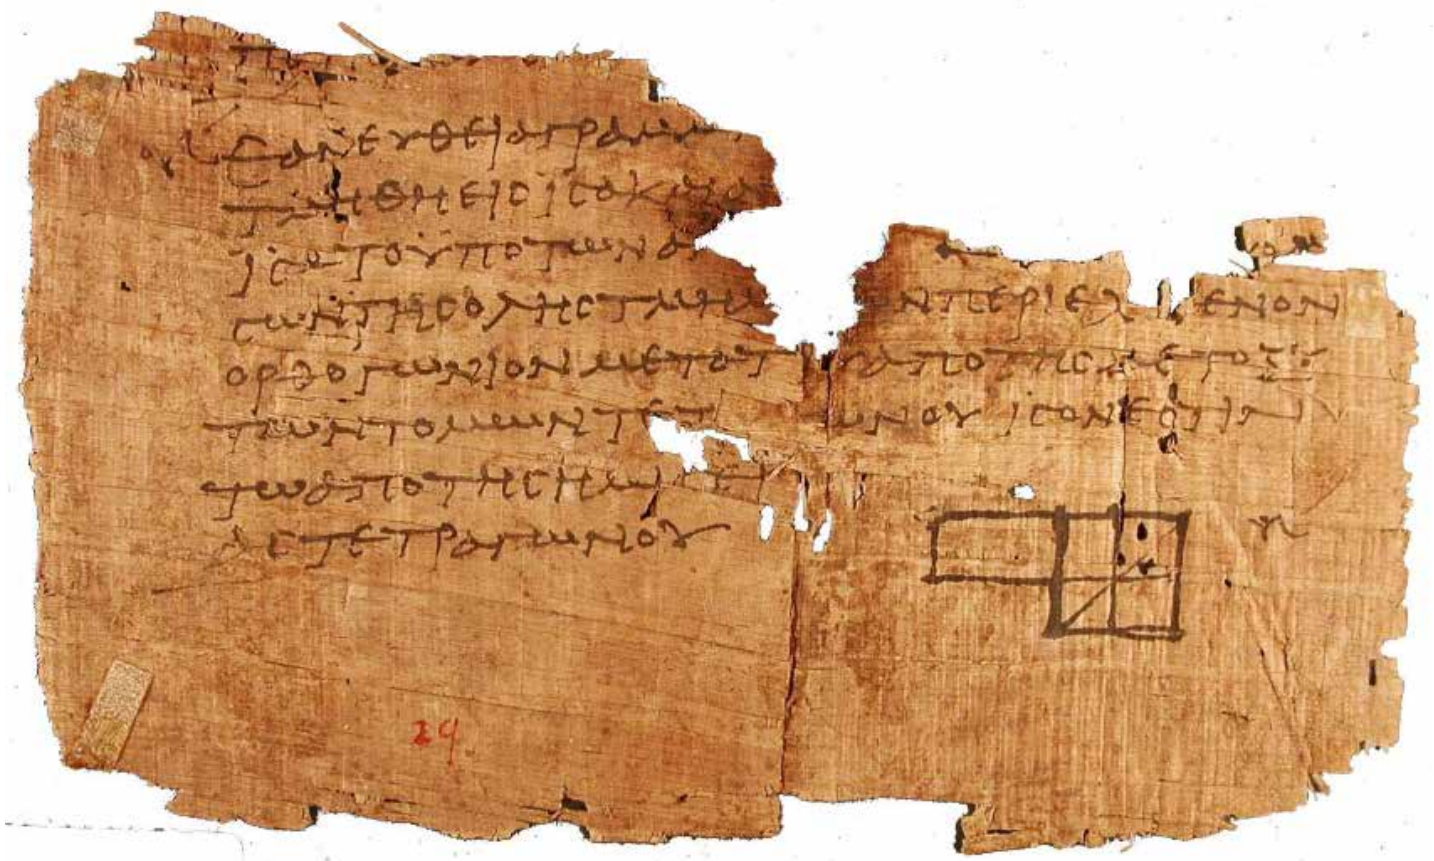 ΕΑΝ ΕΥΘΕΙΑ ΓΡΑΜΜ
ΤΜΗΘΗ ΕΙC ΙCΑ ΚΑΙ Α
ΙCΑ ΤΟ ΥΠΟ ΤΩΝ ΑΝ
CΩΝ ΤΗC ΟΛΗC ΤΜΗΜ Ν ΠΕΡΙΕΧ ΜΕΝΟΝ
ΟΡΘΟΓΩΝΙΟΝ ΜΕΤΑ Τ Υ ΑΠΟ ΤΗC ΜΕΤΟΞΥ
ΤΩΝ ΤΟΜΩΝ ΤΕΤ ΩΝΟΥ ΙCΟΝ ΕCΤΙΝ
ΤΩ ΑΠΟ ΤΗC ΗΜΙ
ΑC ΤΕΤΡΑΓΩΝΟΥ
29